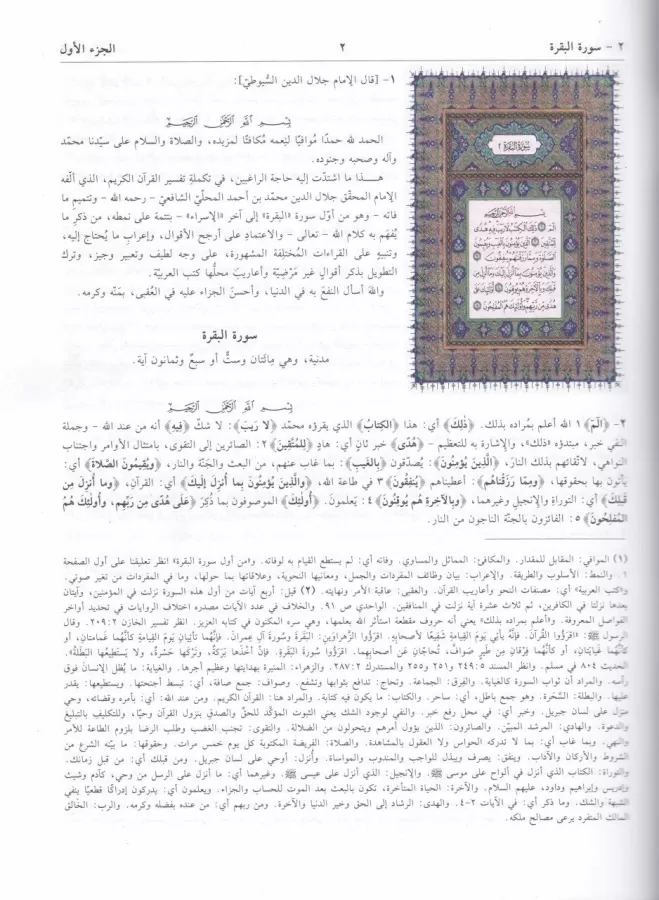 ٢ - سورة البقرة ٢ الجزء الأول
١- [قال الإمام جلال الدين السُّيوطيّ]:
بسم الله الرحمن الرحيم
الحمد لله حمدًا مُوافيًا لنِعمه مُكافئًا لمزيده، والصلاة والسلام على سيّدنا محمّد
وآله وصحبه وجنوده.
هـذا ما اشتدّت إليه حاجة الراغبين، في تكملةِ تفسير القرآن الكريم، الذي ألّفه
الإمام المحقّق جلال الدين محمّد بن أحمد المحلّيّ الشافعيّ - رحمه الله - وتتميمِ ما
فاته - وهو من أوّل سورة «البقرة» إلى آخر «الإسراء» - بتتمة على نمطه، من ذكر ما
يُفهَم به كلام الله - تعالى - والاعتمادِ على أرجح الأقوال، وإعرابِ ما يُحتاج إليه،
وتنبيهٍ على القراءات المُختلِفة المشهورة، على وجه لطيف وتعبير وجيز، وترك
التطويل بذكر أقوالٍ غيرِ مَرْضِيّة وأعاريبَ محلُّها كتب العربيّة.
واللهَ أسأل النفعَ به في الدنيا، وأحسنَ الجزاء عليه في العُقبى، بمَنّه وكرمه.
سورة البقرة
مدنية، وهي مِائتان وستٌّ أو سبعٌ وثمانون آية.
سورة البقرة ٢
بسم الله الرحمن الرحيم
الم ذلك الكتاب لا ريب فيه هدى
للمتقين الذين يؤمنون بالغيب ويقيمون
الصلوة ومما رزقنهم ينفقون
والذين يؤمنون بما أنزل إليك وما أنزل من
قبلك وبالآخرة هم يوقنون أولئك على
هدى من ربهم وأولئك هم المفلحون
بسم الله الرحمن الرحيم
٢- ﴿الٓمٓ﴾ ١ الله أعلم بمُراده بذلك. ﴿ذٰلِكَ﴾ أي: هذا ﴿الكِتابُ﴾ الذي يقرؤه محمّد ﴿لا رَيبَ﴾: لا شكّ ﴿فِيهِ﴾ أنه من عند الله - وجملة
النفي خبر، مبتدؤه «ذلك»، والإشارة به للتعظيم - ﴿هُدًى﴾ خبر ثانٍ أي: هادٍ ﴿لِلمُتَّقِينَ﴾ ٢: الصائرين إلى التقوى، بامتثال الأوامر واجتناب
النواهي، لاتّقائهم بذلك النارَ، ﴿الَّذِينَ يُؤمِنُونَ﴾: يُصدّقون ﴿بِالغَيبِ﴾: بما غاب عنهم، من البعث والجَنّة والنار، ﴿ويُقِيمُونَ الصَّلاةَ﴾ أي:
يأتون بها بحقوقها، ﴿ومِمّا رَزَقْناهُم﴾: أعطيناهم ﴿يُنفِقُونَ﴾ ٣ في طاعة الله، ﴿والَّذِينَ يُؤمِنُونَ بِما أُنزِلَ إلَيكَ﴾ أي: القرآنِ، ﴿وما أُنزِلَ مِن
قَبلِكَ﴾ أي: التوراةِ والإنجيلِ وغيرهما، ﴿وبِالآخِرةِ هُم يُوقِنُونَ﴾ ٤: يَعلمون. ﴿أُولٰئِكَ﴾ الموصوفون بما ذُكِرَ ﴿عَلَى هُدًى مِن رَبِّهِم، وأُولٰئِكَ هُمُ
المُفلِحُونَ﴾ ٥: الفائزون بالجنّة الناجون من النار.
(١) الموافي: المقابل للمقدار. والمكافئ: المماثل والمساوي. وفاته أي: لم يستطع القيام به لوفاته. و«من أول سورة البقرة» انظر تعليقنا على أول الصفحة
والنمط: الأسلوب والطريقة. والإعراب: بيان وظائف المفردات والجمل، ومعانيها النحوية، وعلاقاتها بما حولها، وما في المفردات من تغير صوتي.
و«كتب العربية» أي: مصنفات النحو وأعاريب القرآن. والعقبى: عاقبة الأمر ونهايته. (٢) قيل: أربع آيات من أول هذه السورة نزلت في المؤمنين، وآيتان
بعدها نزلتا في الكافرين، ثم ثلاث عشرة آية نزلت في المنافقين. الواحدي ص ٩١. والخلاف في عدد الآيات مصدره اختلاف الروايات في تحديد أواخر
الفواصل المعروفة. و«أعلم بمراده بذلك» يعني أنه حروف مقطعة استأثر الله بعلمها، وهي سره المكنون في كتابه العزيز. انظر تفسير الخازن ٢:٢٠٩. وقال
الرسول ﷺ: «اقرَؤُوا القُرآنَ. فإنَّه يأتي يَومَ القِيامةِ شَفِيعًا لأصحابِهِ. اقرَؤُوا الزَّهراوَينِ: البَقَرةَ وسُورةَ آلِ عِمرانَ. فإنَّهُما تأتِيانِ يَومَ القِيامةِ كأنَّهُما غَمامتانِ، أو
كأنَّهُما غَيايَتانِ، أو كأنَّهُما فِرْقانِ مِن طَيرٍ صَوافَّ، تُحاجّانِ عَن أصحابِهِما. اقرَؤُوا سُورةَ البَقَرةِ. فإنَّ أخْذَها بَرَكةٌ، وتَركَها حَسْرةٌ، ولا يَستَطِيعُها البَطَلةُ».
الحديث ٨٠٤ في مسلم. وانظر المسند ٥: ٢٤٩ و٢٥١ و٢٥٥ والمستدرك ٢: ٢٨٧. والزهراء: المنيرة بهدايتها وعظيم أجرها. والغياية: ما يُظل الإنسانَ فوق
رأسه. والمراد أن ثواب السورة كالغياية. والفِرق: الجماعة. وتحاج: تدافع بثوابها وتشفع. وصواف: جمع صافة، أي: تبسط أجنحتها. ويستطيعها: يقدر
عليها. والبطلة: السَّحَرة. وهو جمع باطل، أي: ساحر. والكتاب: ما يكون فيه كتابة. والمراد هنا: القرآن الكريم. ومن عند الله: أي: بأمره وقضائه، وحي
منزل على لسان جبريل. وخبر أي: في محل رفع خبر. والنفي لوجود الشك يعني الثبوت المؤكَّد للحقّ والصدقِ بنزول القرآن وحيًا، وللتكليف بالتبليغ
والدعوة. والهادي: المرشد المبيّن. والصائرون: الذين يؤول أمرهم ويتحولون من الضلالة. والتقوى: تجنب الغضب وطلب الرضا بلزوم الطاعة للأمر
والنهي. وبما غاب أي: بما لا تدركه الحواس ولا العقول بالمشاهدة. والصلاة: الفريضة المكتوبة كل يوم خمس مرات. وحقوقها: ما بيّنه الشرع من
الشروط والأركان والآداب. وينفق: يصرف ويبذل للواجب والمندوب والمواساة. وأُنزل: أوحي على لسان جبريل. ومن قبلك أي: من قبل زمانك.
والتوراة: الكتاب الذي أنزل في ألواح على موسى ﷺ. والإنجيل: الذي أنزل على عيسى ﷺ. وغيرهما أي: ما أنزل على الرسل من وحي، كآدم وشيث
وإدريس وإبراهيم وداود، عليهم السلام. والآخرة: الحياة المتأخرة، تكون بالبعث بعد الموت للحساب والجزاء. ويعلمون أي: يدركون إدراكًا قطعيًا ينفي
الشبهة والشك. وما ذكر أي: في الآيات ٢-٤. والهدى: الرشاد إلى الحق وخير الدنيا والآخرة. ومن ربهم أي: من عنده بفضله وكرمه. والرب: الخالق
المالك المتفرد يرعى مصالح ملكه.